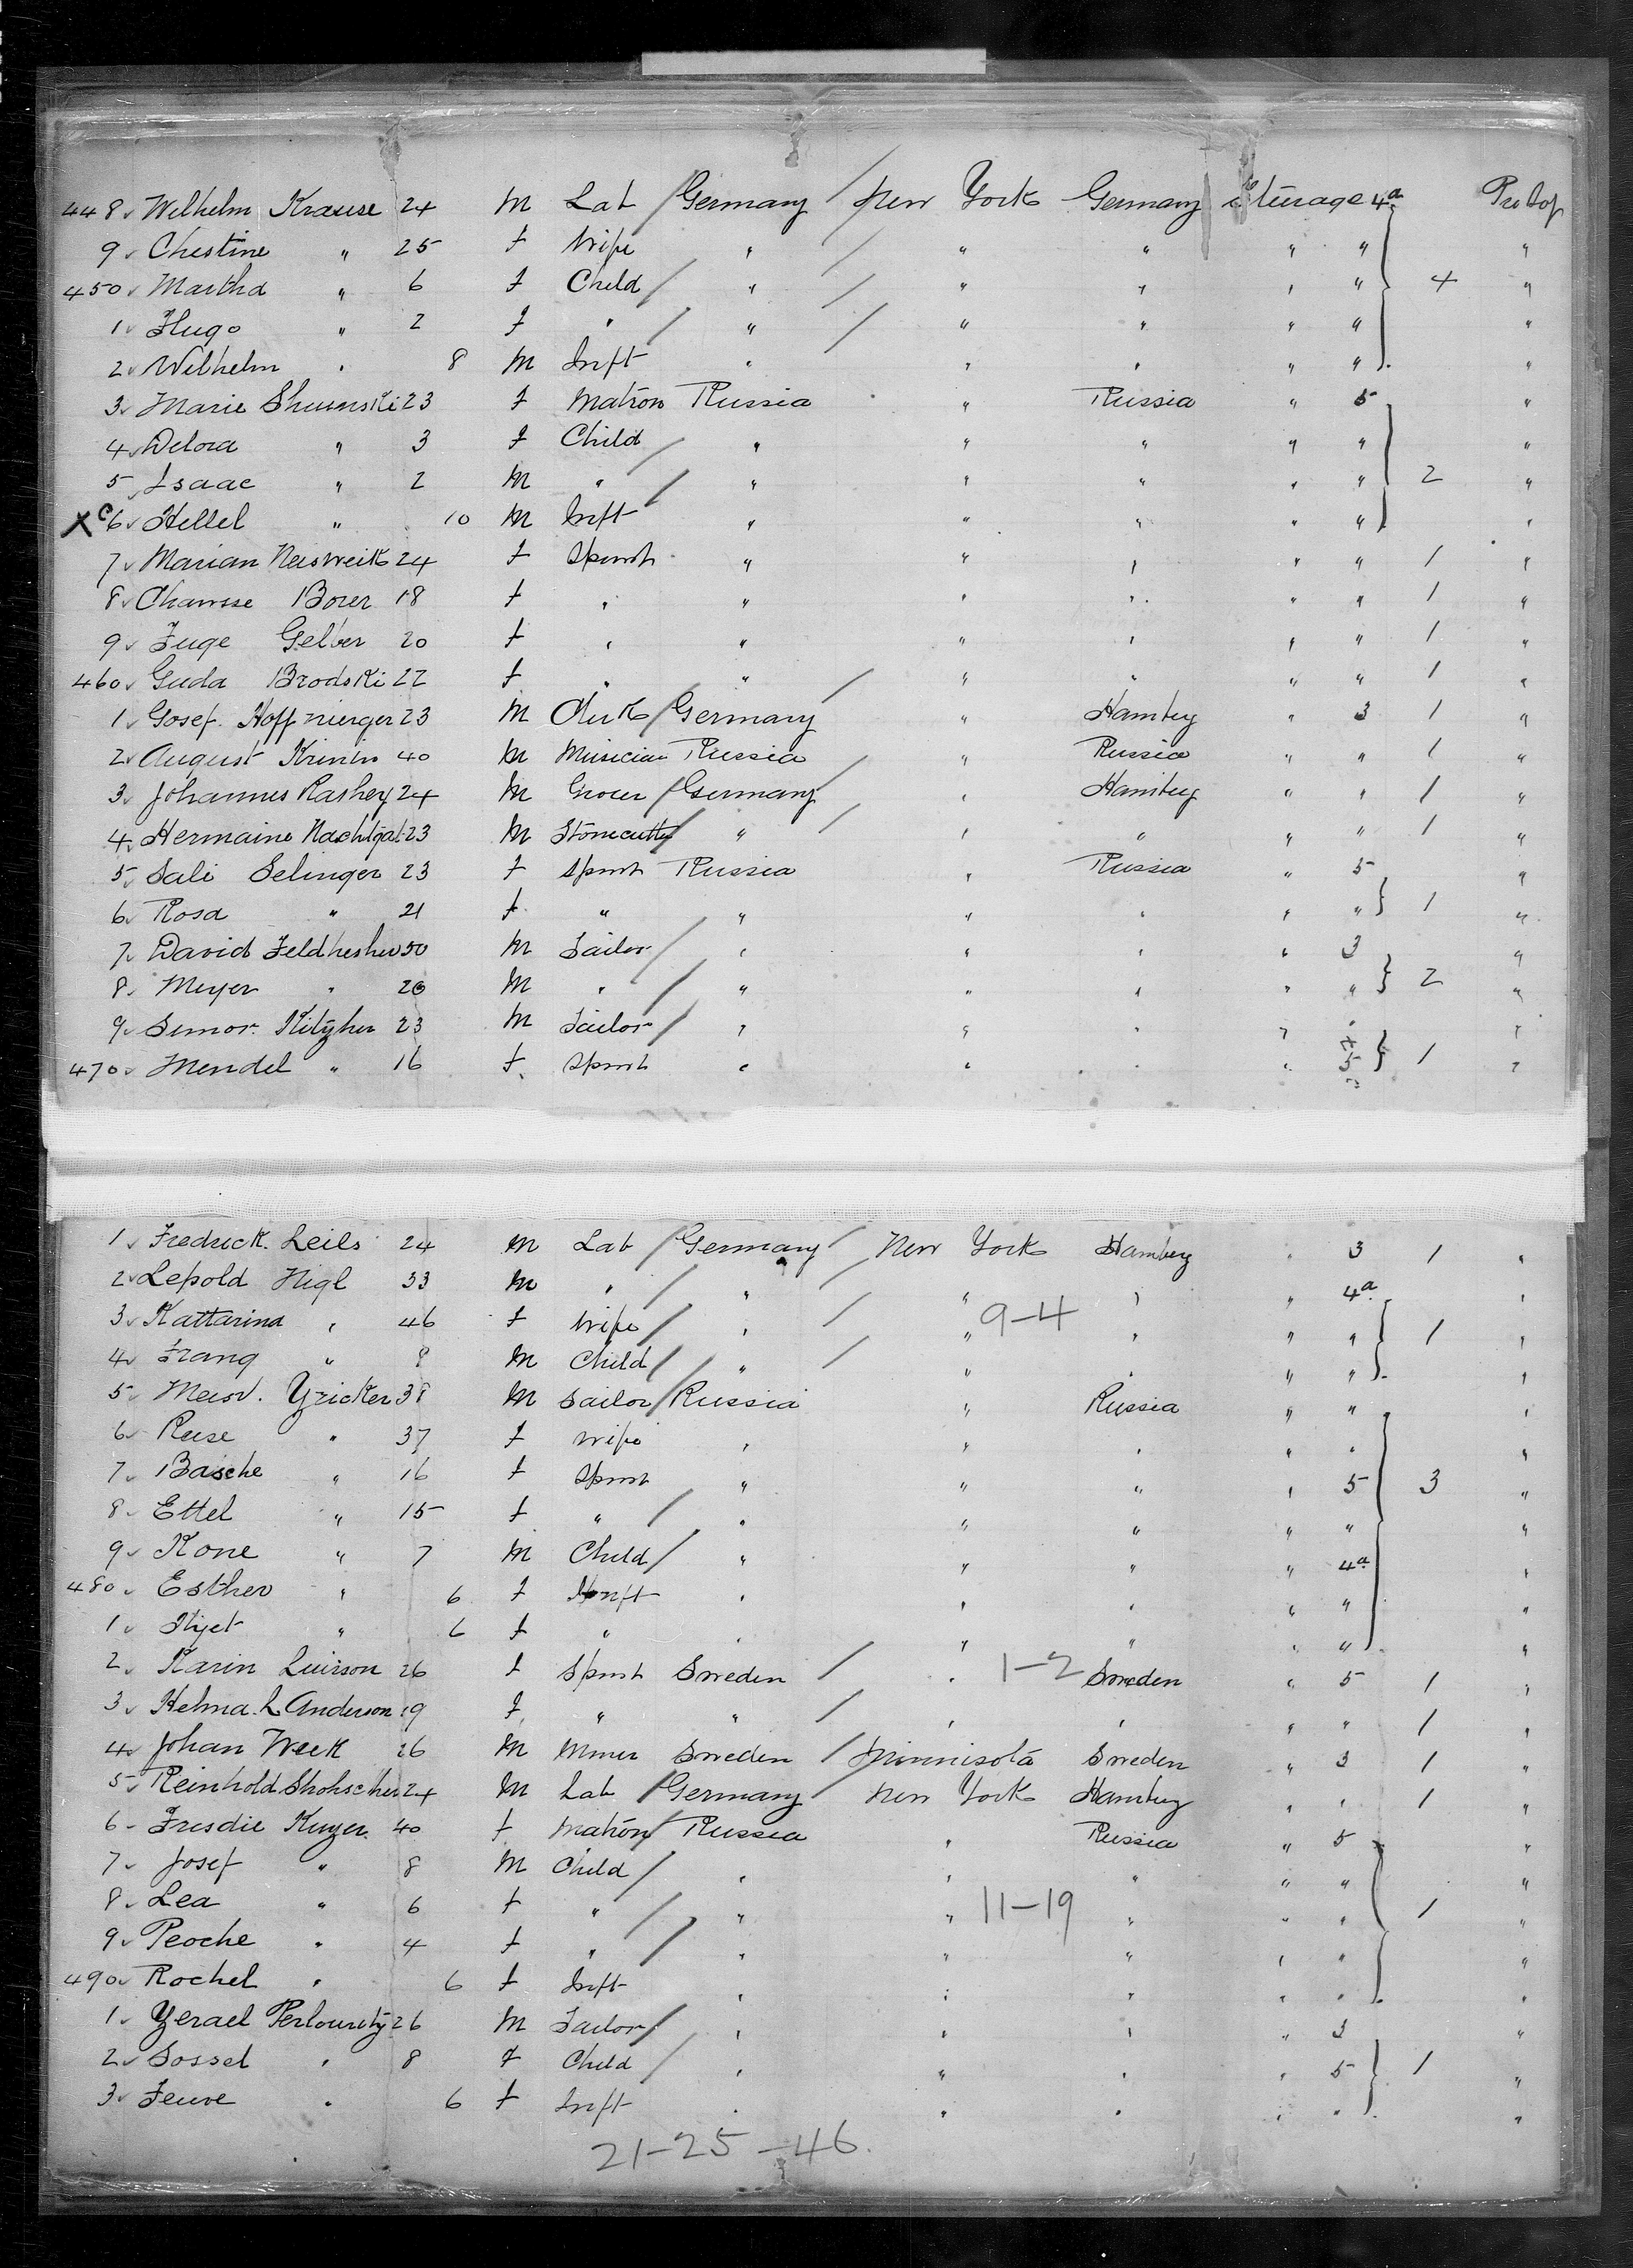 448 Wilhelm Krause 24 M Lab Germany New York Germany Sterage 4a Pro Dof
9 Chestine " 25 f Wife " " " " " "
450 Martha " 6 f Child " " " " " 4 "
1 Hugo " 2 f " " " " " " "
2 Wilhelm " 8 M Inft " " " " " "
3 Marie 23 f Matron Russia " Russia " 5 "
4 Delora " 3 f Child " " " " " "
5 Isaac " 2 M " " " " " " 2 "
XC 6 Hellel " 10 M Inft " " " " " "
7 Marian Neisweik 24 f Spinst " " " " " 1 "
8 Chansse Borer 18 f " " " " " " 1 "
9 Fuge Gelber 20 f " " " " " " 1 "
460 Guda Brodski 22 f " " " " " " 1 "
1 Gosef. 23 M Clerk Germany " Hamburg " 3 1 "
2 August 40 M Musician Russia " Russia " " 1 "
3 Johannes Rashey 24 M Grocer Germany " Hamburg " " 1 "
4 Hermaine Nachtgal 23 M Stonecutter " " " " " 1 "
5 Sali Selinger 23 f Spinst Russia " Russia " 5 "
6 Rosa " 21 f " " " " " " 1 "
7 David 50 M Tailor " " " " 3 "
8 Meyer " 20 M " " " " " " 2 "
9 Simor. 23 M Tailor " " " " "
470 Mendel " 16 f Spinst " " " " 5 1 "
1 Fredrick. Leils 24 M Lab Germany New York Hamburg " 3 1 "
2 Lepold Higl 33 M " " " " " 4a "
3 Kattarina " 46 f Wife " " 9-4 " " " 1 "
4 Franz " 8 M Child " " " " " "
5 Yricker 38 M Sailor Russia " Russia " " "
6 Reese " 37 f Wife " " " " " "
7 Basche " 16 f Spinst " " " " 5 3 "
8 Ettel " 15 f " " " " " " "
9 Kone " 7 M Child " " " " 4a "
480 Esther " 6 f Inft " " " " " "
1 " 6 f " " " " " " "
2 Karin Luisson 26 f Spinst Sweden " 1-2 Sweden " 5 1 "
3 Helma. L Anderson 19 f " " " " " " 1 "
4 Johan Week 26 M Miner Sweden Minnisota Sweden " 3 1 "
5 Reinhold 24 M Lab Germany New York Hamburg " " 1 "
6 Fresdie Kuyer 40 f Matron Russia " Russia " 5 "
7 Josef " 8 M Child " " " " " "
8 Lea " 6 f " " " 11-19 " " " 1 "
9 Peoche " 4 f " " " " " " "
490 Rochel " 6 f Inft " " " " " "
1 Yerael Perlouritz 26 M Tailor " " " " 3 "
2 Sossel " 8 f Child " " " " 5 1 "
3 Feuve " 6 f Inft " " " " " "
21-25-46.